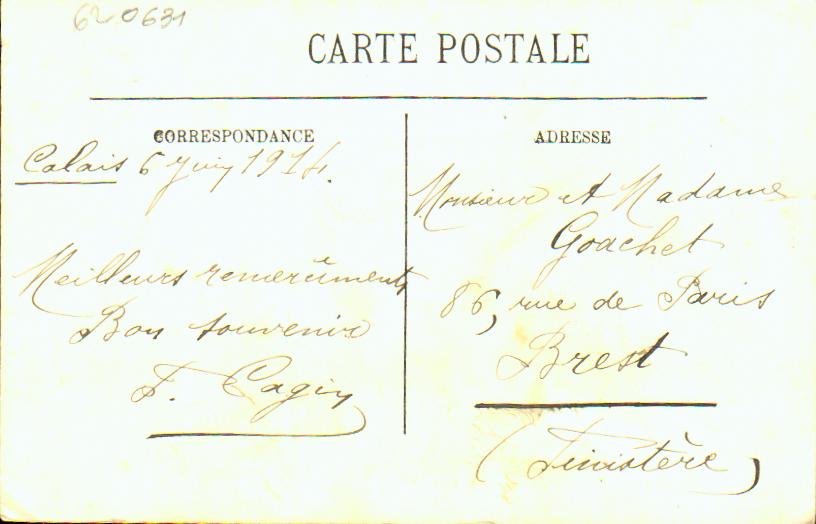 62 0631
CARTE POSTALE
CORRESPONDANCE
Calais 6 juin 1914.
Meilleurs remerciments
Bon souvenir
F. Cagin
ADRESSE
Monsieur et Madame
Goachet
86, rue de Paris
Brest
(Finistère)